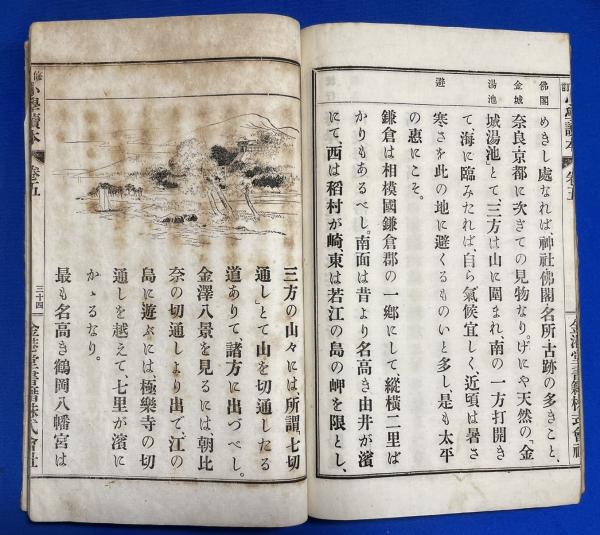 佛閣
金城
湯池
避
めきし處なれば、神社佛閣名所古跡の多きこと、
奈良京都に次ぎての見物なり。げにや天然の「金
城湯池」とて、三方は山に圍まれ南の一方打開き
て、海に臨みたれば、自ら氣候宜しく、近頃は暑さ
寒さを此の地に避くるものいと多し、是も太平
の惠にこそ。
鎌倉は相模國鎌倉郡の一鄕にして縱横二里ば
かりもあるべし。南面は昔より名高き由井が濱
にて、西は稻村が崎、東は若江の島の岬を限とし、
三方の山々には所謂「七切
通し」とて山を切通したる
道ありて諸方に出づべし。
金澤八景を見るには朝比
奈の切通しより出で、江の
島に遊ぶには、極樂寺の切
通しを越えて、七里が濱に
かゝるなり。
最も名高き鶴岡八幡宮は
小學讀本
卷之五
三十四
金港堂書籍株式會社